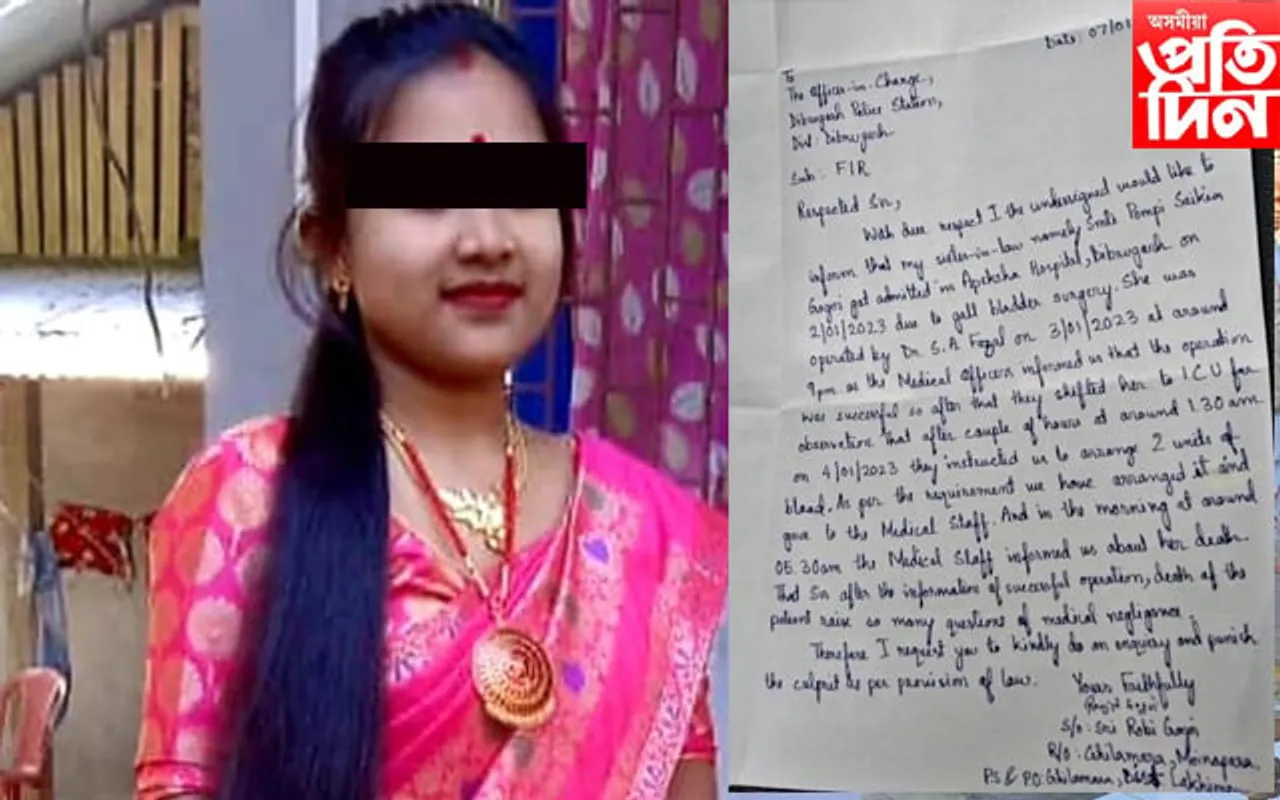 অসমীয়া
প্রতি
দিন
Date: 07/01
To
The Officer-in-Charge,
Dibrugarh Police Station,
Dist: Dibrugarh
Sub: FIR
Respected Sir,
With due respect I the undersigned would like to
inform that my sister-in-law namely Smti Pompi Saikia
Gogoi got admitted in Apeksha Hospital, Dibrugarh on
2/01/2023 due to gall bladder surgery. She was
operated by Dr. S. A. Fazal on 3/01/2023 at around
9pm as the Medical Officers informed us that the operation
was successful so after that they shifted her to ICU for
observation. That after couple of hours at around 1.30 am
on 4/01/2023 they instructed us to arrange 2 units of
blood. As per the requirement we have arranged it and
gave to the Medical Staff. And in the morning at around
05.30am the Medical Staff informed us about her death.
That Sir after the information of successful operation, death of the
patient raise so many questions of medical negligence.
Therefore I request you to kindly do an enquiry and punish
the culprit as per provision of law.
Yours Faithfully
Gogoi
S/o: Sri Robi Gogoi
R/o: Ghilamora, Moinapara
P.S & P.O: Ghilamara, Dist